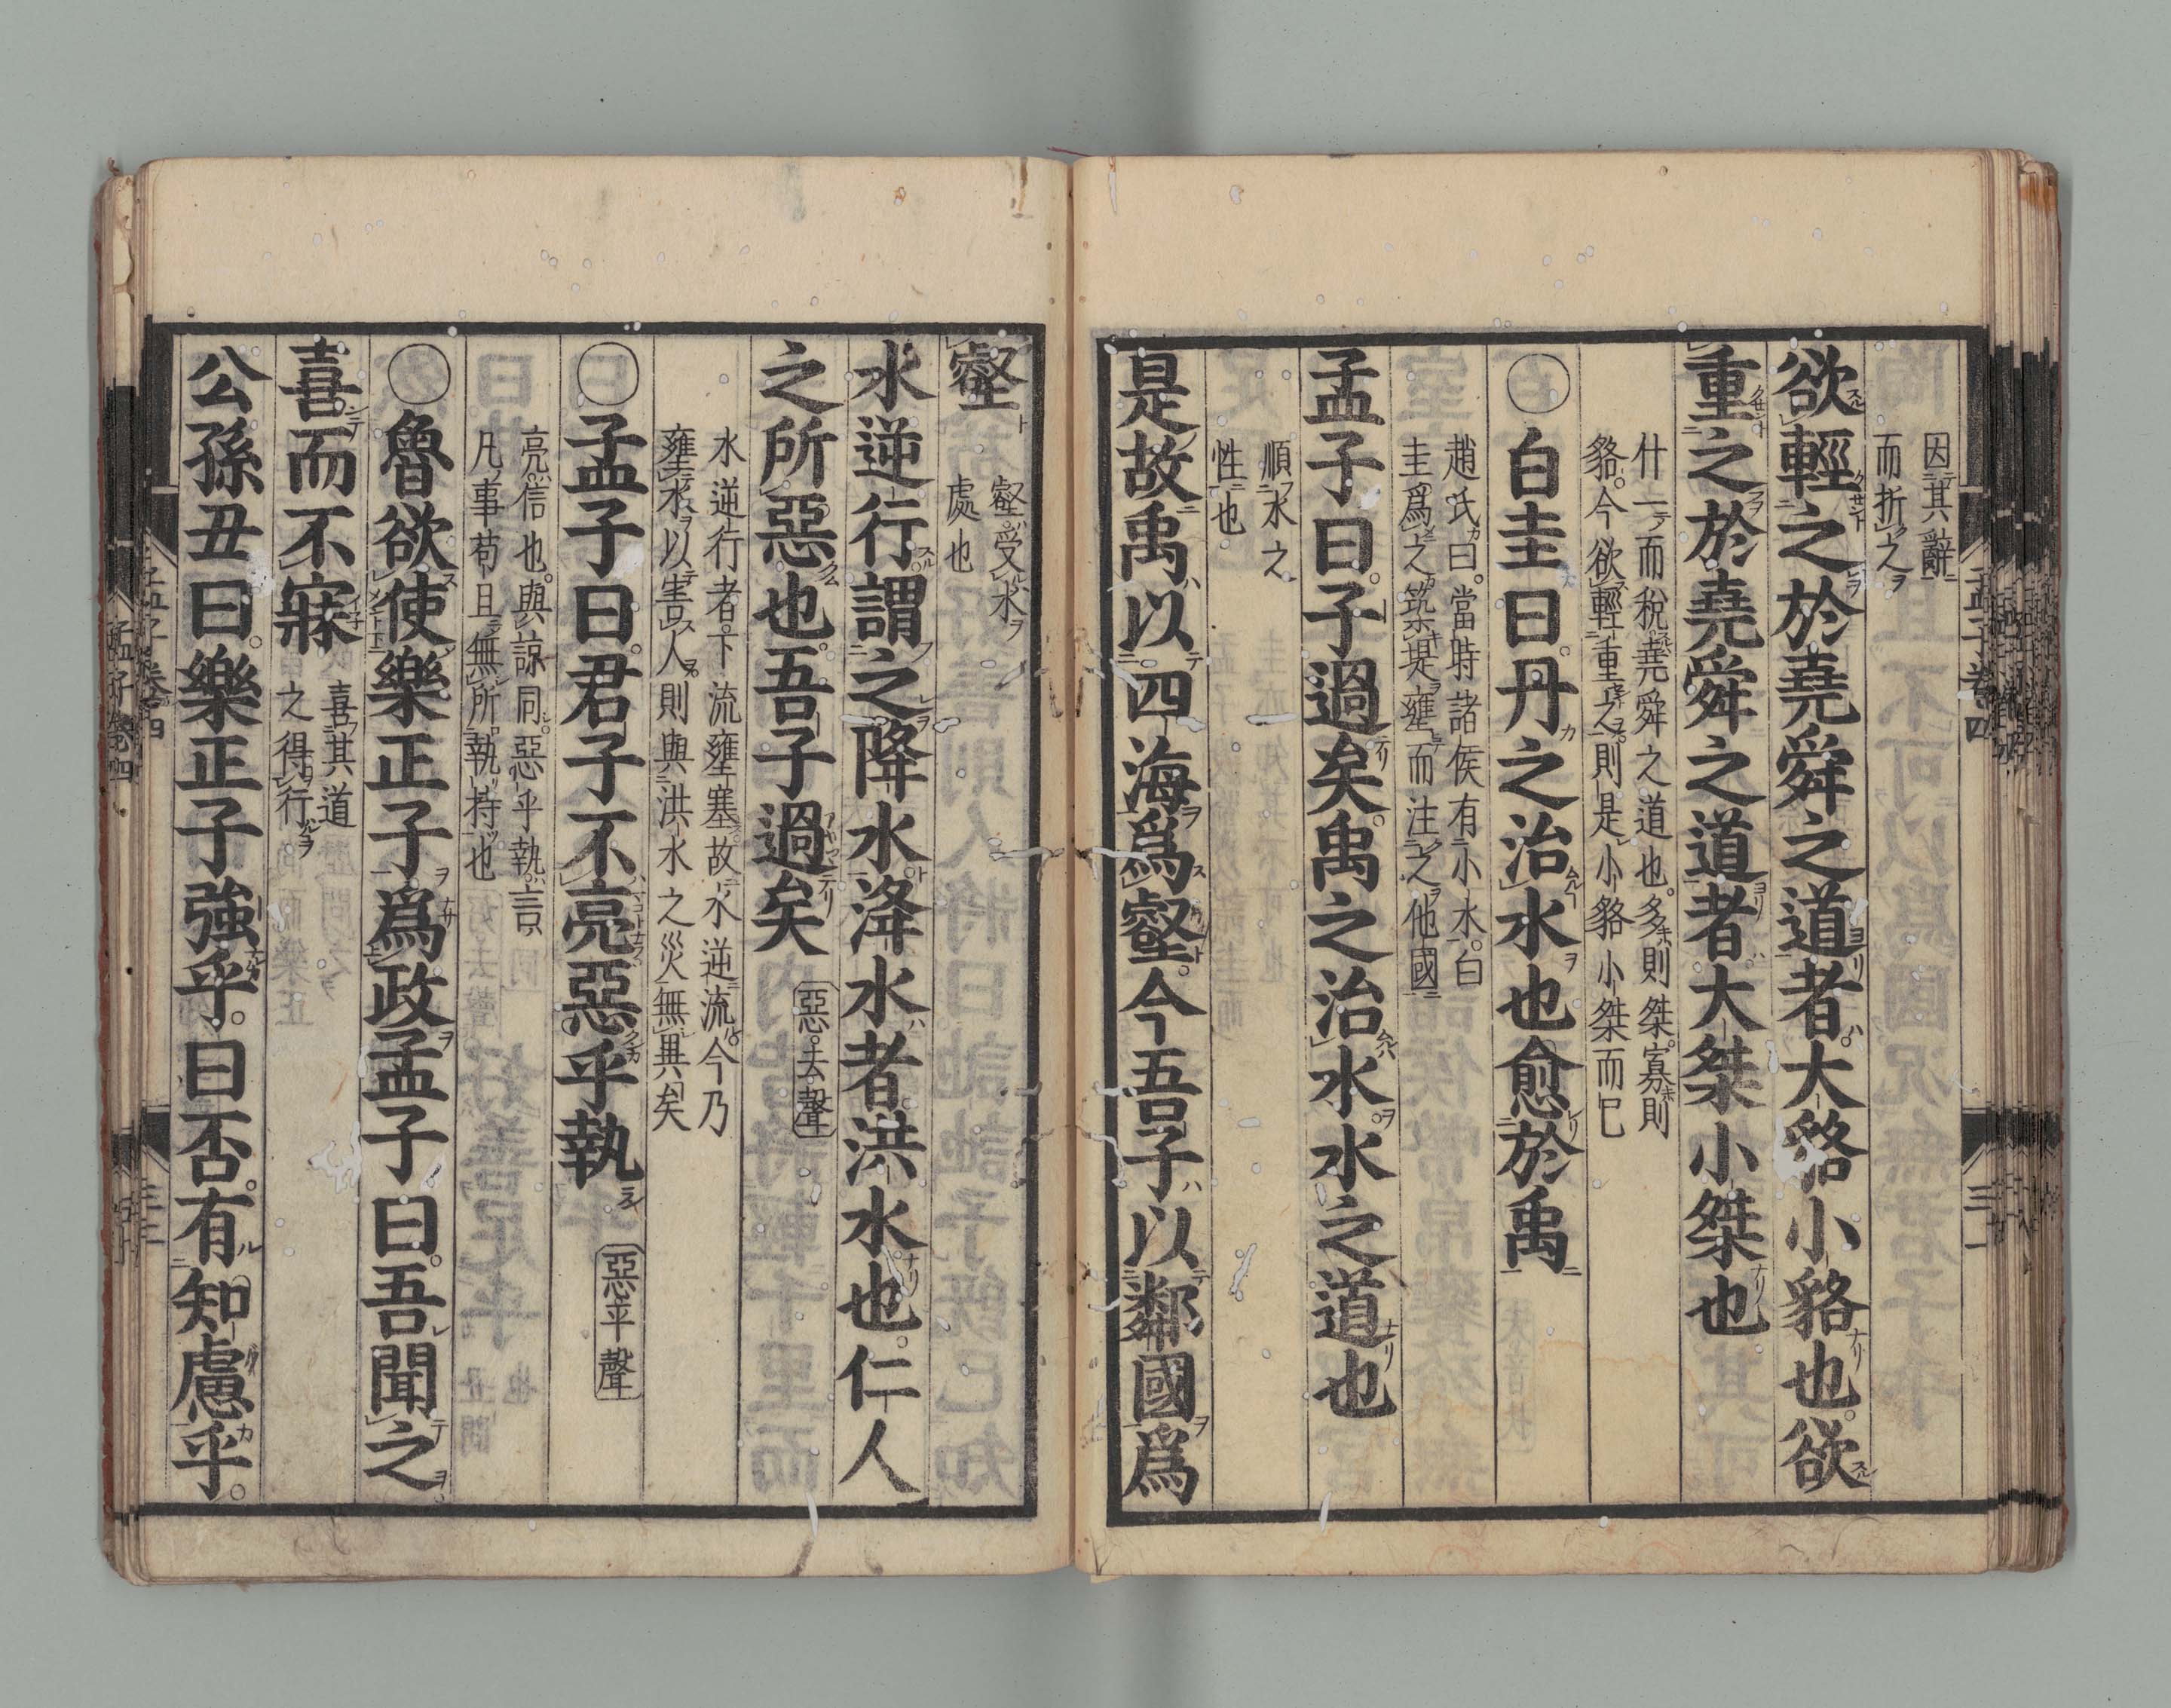 因其辭
而折之
欲輕之於堯舜之道者大貉小貉也欲
重之於堯舜之道者大桀小桀也
什一而稅堯舜之道也多則桀寡則
貉今欲輕重之則是小貉小桀而已
○白圭曰丹之治水也愈於禹
趙氏曰當時諸侯有小水白
圭爲之築堤壅而注之他國
孟子曰子過矣禹之治水水之道也
順水之
性也
是故禹以四海爲壑今吾子以鄰國爲
壑
壑受水
處也
水逆行謂之洚水洚水者洪水也仁人
之所惡也吾子過矣
惡去聲
水逆行者下流壅塞故水逆流今乃
壅水以害人則與洪水之災無異矣
○孟子曰君子不亮惡乎執
惡平聲
亮信也與諒同惡乎執言
凡事苟且無所執持也
○魯欲使樂正子爲政孟子曰吾聞之
喜而不寐
喜其道
之得行
公孫丑曰樂正子強乎曰否有知慮乎
孟子卷四